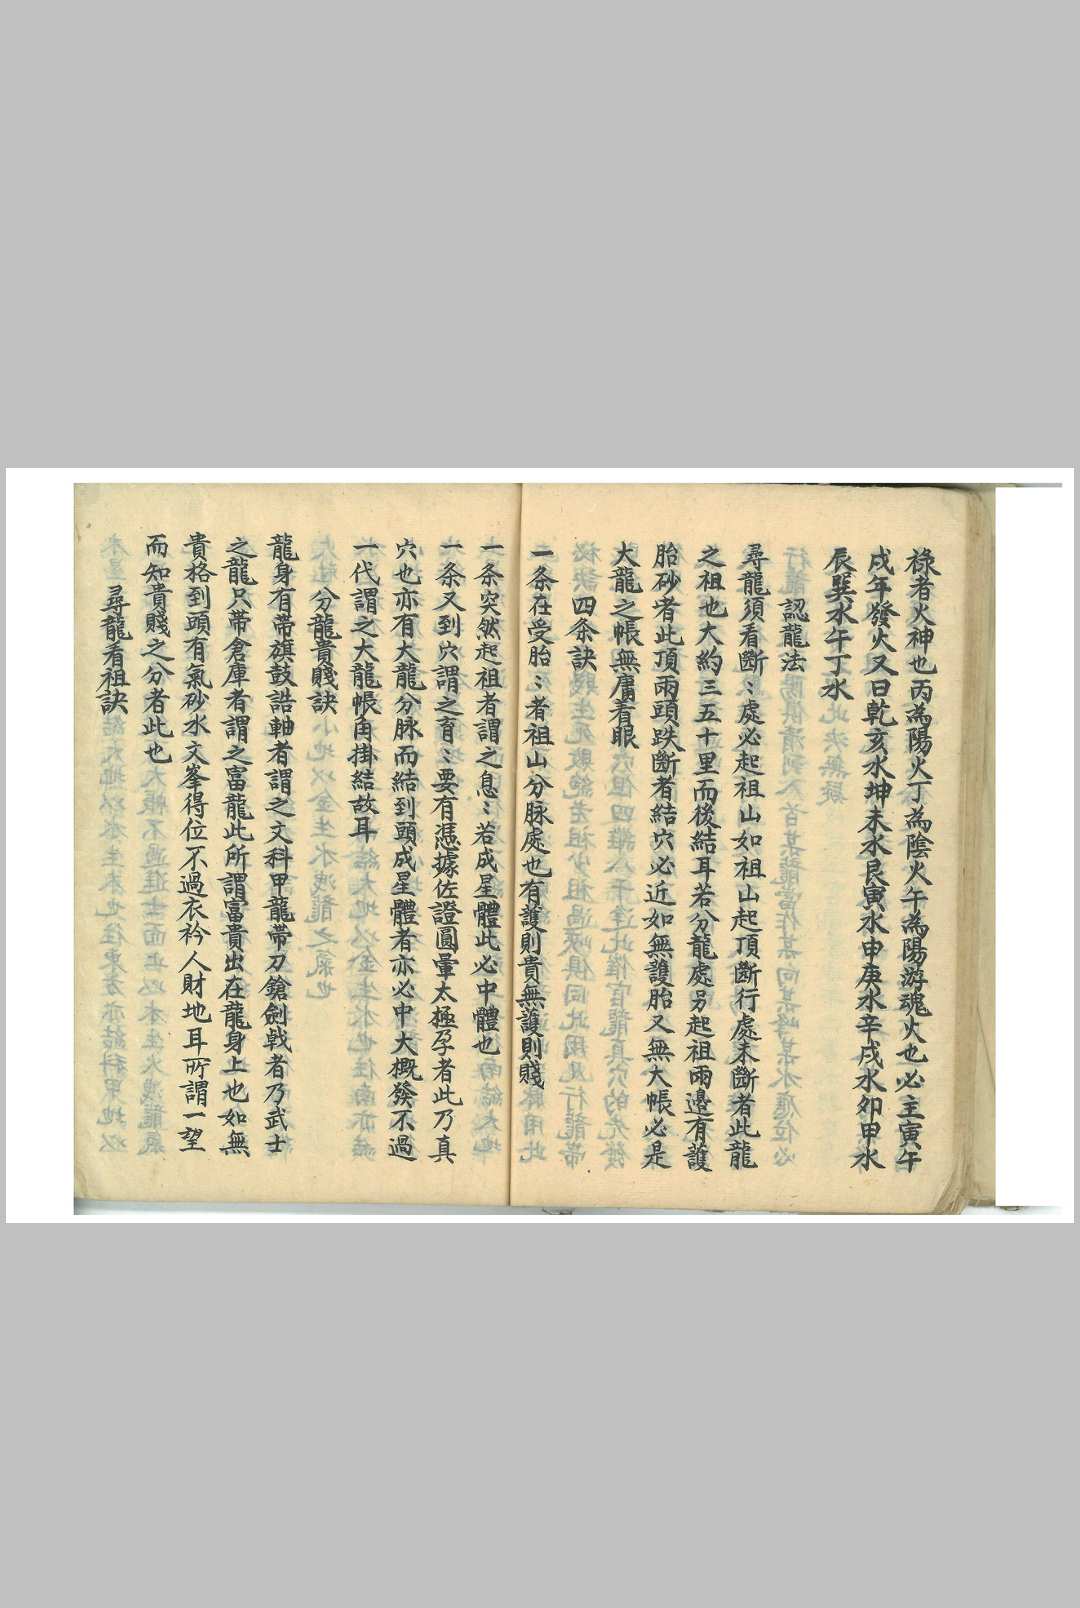 祿者火神也丙為陽火丁為陰火午為陽游魂火也必主寅午
戌年發火又曰乾亥水坤未水艮寅水申庚水辛戌水卯甲水
辰巽水午丁水
認龍法
尋龍須看斷〻處必起祖山如祖山起頂斷行處未斷者此龍
之祖也大約三五十里而後結耳若分龍處另起祖兩邊有護
胎砂者此頂兩頭跌斷者結穴必近如無護胎又無大帳必是
大龍之帳無庸着眼
四条訣
一条在受胎〻者祖山分脉處也有護則貴無護則賤
一条突然起祖者謂之息〻若成星體此必中體也
一条又到穴謂之育〻要有憑據佐證圓暈太極孕者此乃真
穴也亦有大龍分脉而結到頭成星體者亦必中大概發不過
一代謂之大龍帳角掛結故耳
分龍貴賤訣
龍身有帶旗鼓誥軸者謂之文科甲龍帶刀鎗劍戟者乃武士
之龍只帶倉庫者謂之富龍此所謂富貴出在龍身上也如無
貴格到頭有氣砂水文峯得位不過衣衿人財地耳所謂一望
而知貴賤之分者此也
尋龍看祖訣